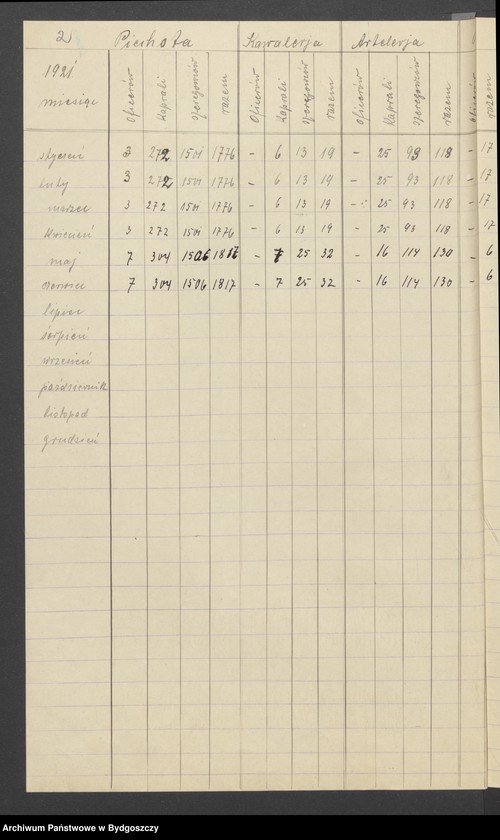 2) Piechota Kawalerja Artelerja
1921 miesiąc oficerów kaprali szeregowców razem oficerów kaprali szeregowców razem oficerów kaprali szeregowców razem razem
styczeń 3 272 1501 1776 – 6 13 19 – 25 93 118 – 17
luty 3 272 1501 1776 – 6 13 19 – 25 93 118 – 17
marzec 3 272 1501 1776 – 6 13 19 – 25 93 118 – 17
kwiecień 3 272 1501 1776 – 6 13 19 – 25 93 118 – 17
maj 7 304 1506 1817 – 7 25 32 – 16 114 130 – 6
czerwiec 7 304 1506 1817 – 7 25 32 – 16 114 130 – 6
lipiec
sierpień
wrzesień
październik
listopad
grudzień
Archiwum Państwowe w Bydgoszczy